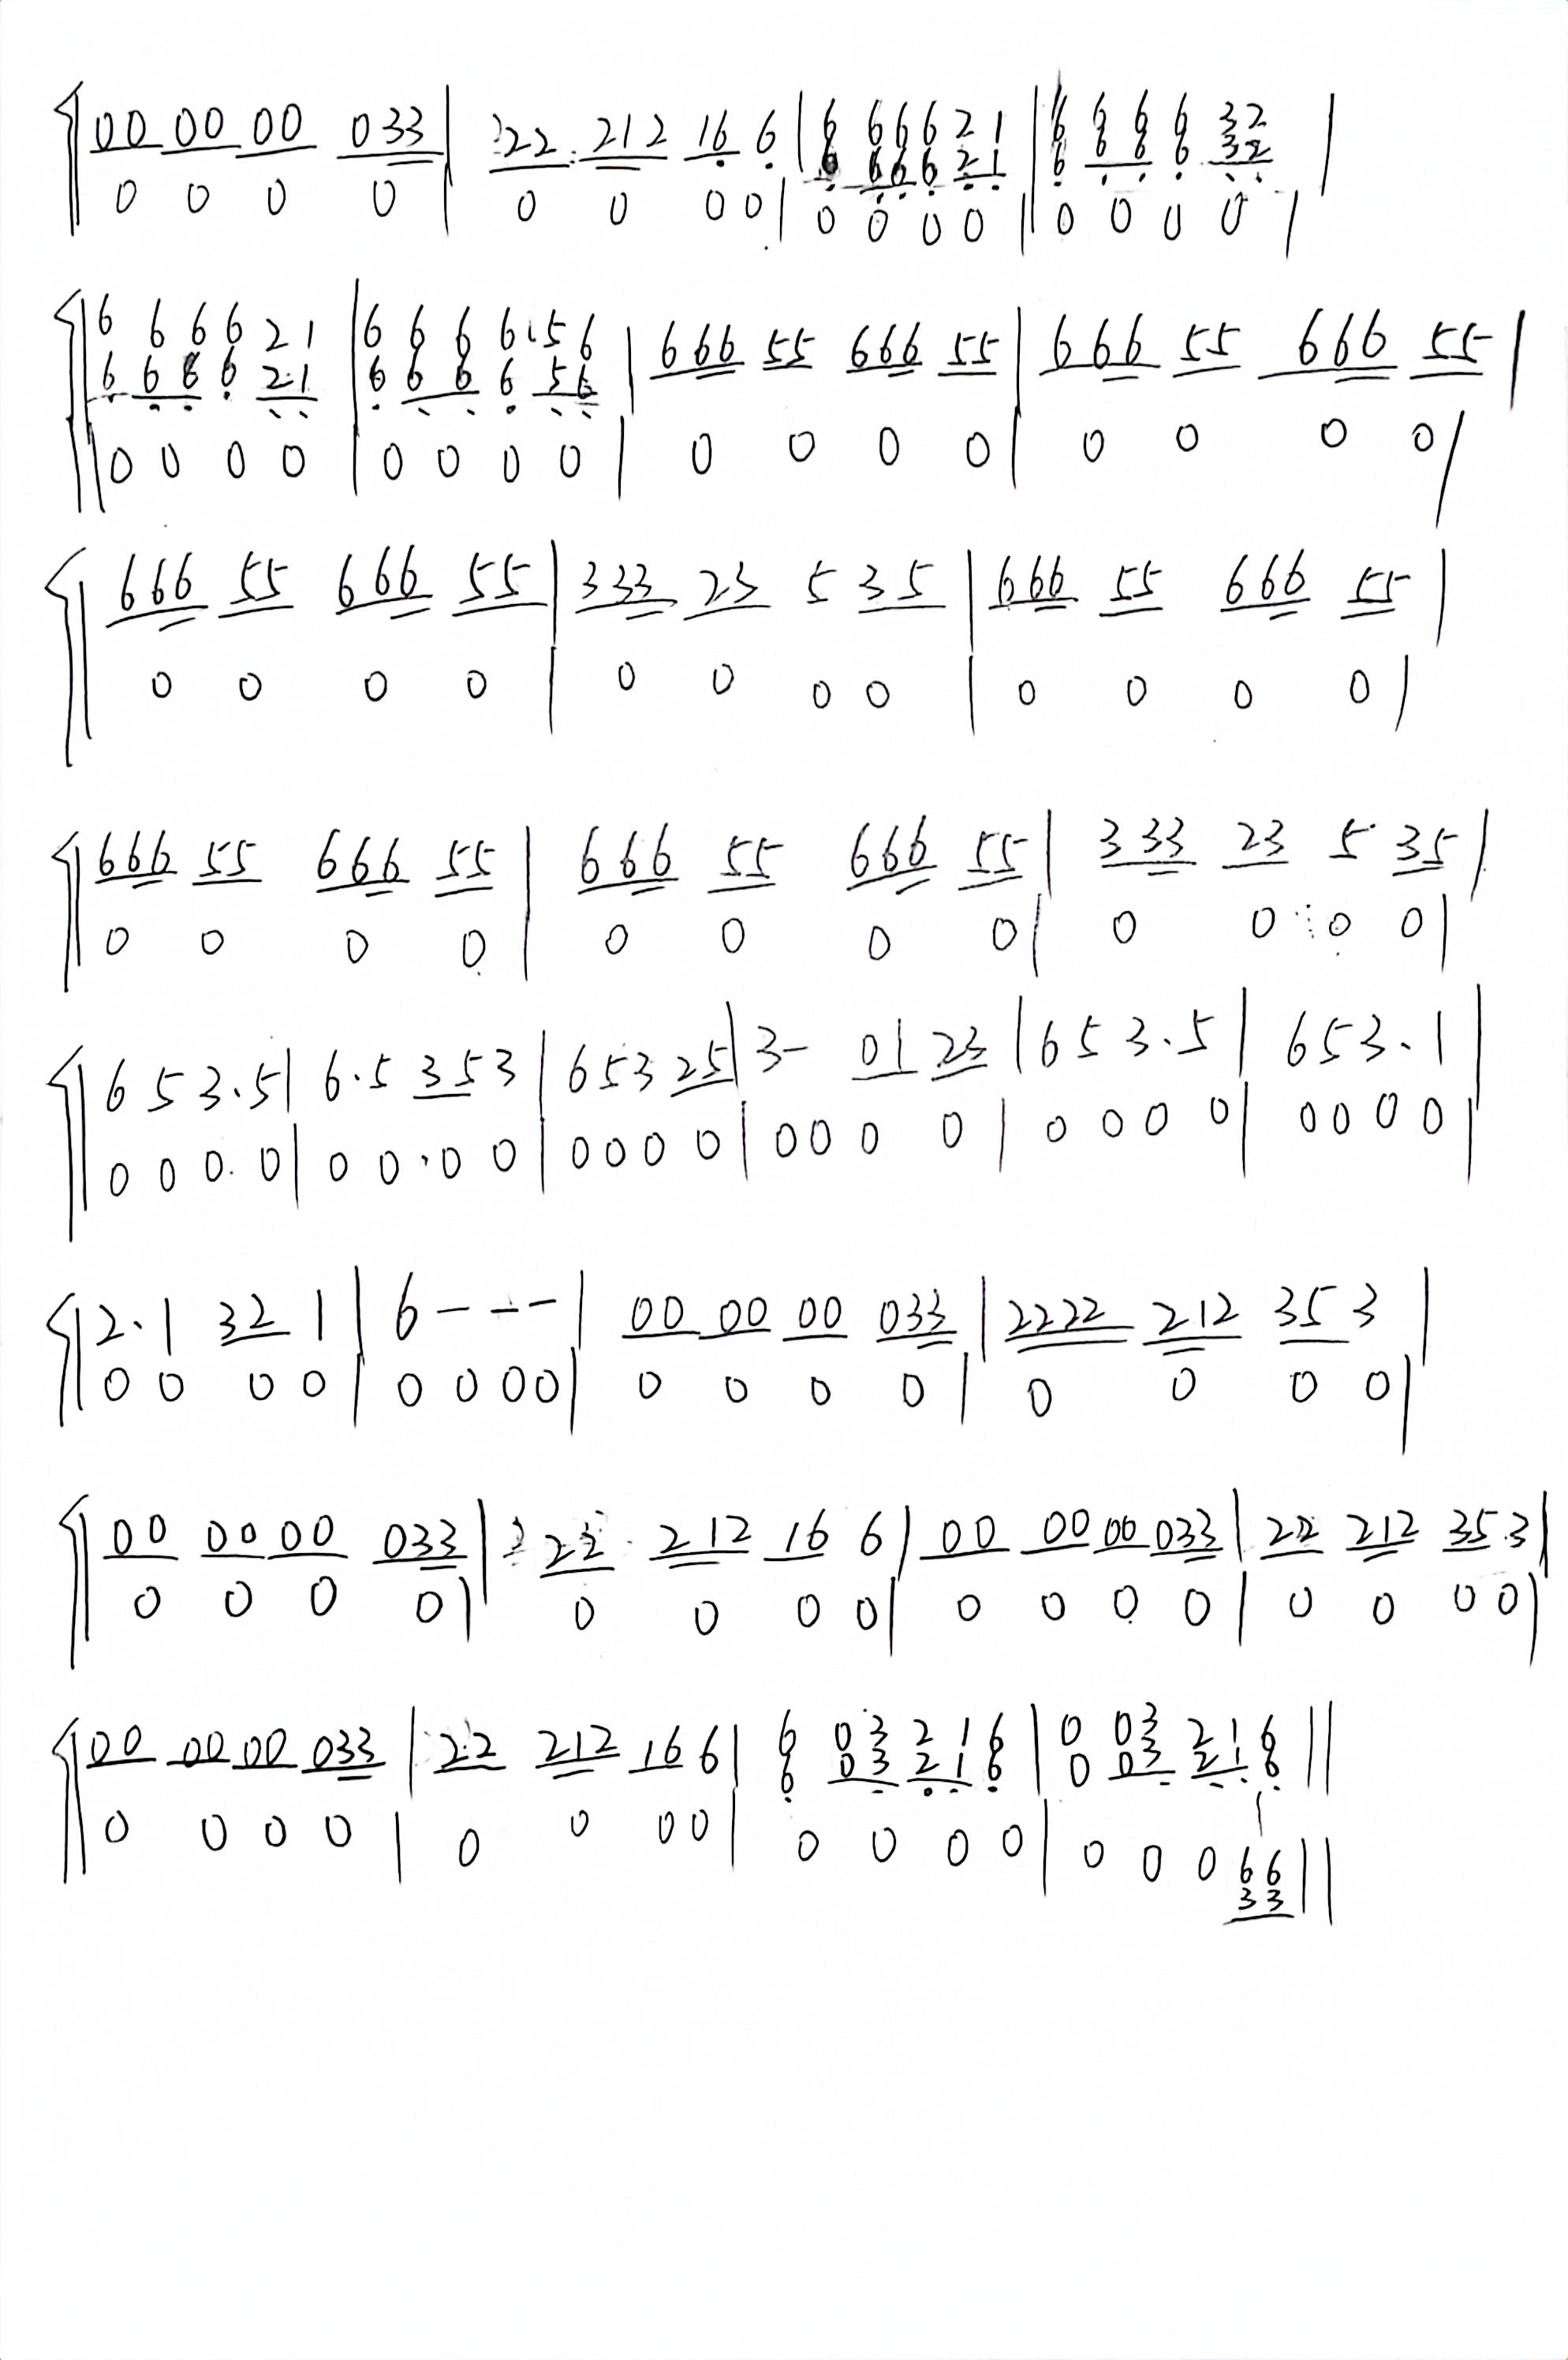 00 00 00 033 | 22 212 16 6 | 6 6 6 6 2 1 | 6 6 6 6 3 2 |
6 6 6 6 2 1 | 6 6 6 6 3 2
0 0 0 0 | 0 0 0 0 | 0 0 0 0 | 0 0 0 0 |
6 6 6 6 2 1 | 6 6 6 6·5 6 | 666 55 666 55 | 666 55 666 55 |
6 6 6 6 2 1 | 6 6 6 6 5 6
0 0 0 0 | 0 0 0 0 | 0 0 0 0 | 0 0 0 0 |
666 55 666 55 | 333 23 5 35 | 666 55 666 55 |
0 0 0 0 | 0 0 0 0 | 0 0 0 0 |
666 55 666 55 | 666 55 666 55 | 333 23 5 35 |
0 0 0 0 | 0 0 0 0 | 0 0 0 0 |
6 5 3·5 | 6·5 353 | 653 25 | 3- 01 23 | 6 5 3·5 | 6 5 3·1 |
0 0 0·0 | 0 0·0 0 | 0 0 0 0 | 0 0 0 0 | 0 0 0 0 | 0 0 0 0 |
2·1 32 1 | 6 - - - | 00 00 00 033 | 2222 212 35 3 |
0 0 0 0 | 0 0 0 0 | 0 0 0 0 | 0 0 0 0 |
00 00 00 033 | 22 212 16 6 | 00 00 00 033 | 22 212 35 3 |
0 0 0 0 | 0 0 0 0 | 0 0 0 0 | 0 0 0 0 |
00 00 00 033 | 22 212 16 6 | 6 03 21 6 | 0 03 21 6 ||
6 03 21 6 | 0 03 21 6
0 0 0 0 | 0 0 0 0 | 0 0 0 0 | 0 0 0 66 ||
33